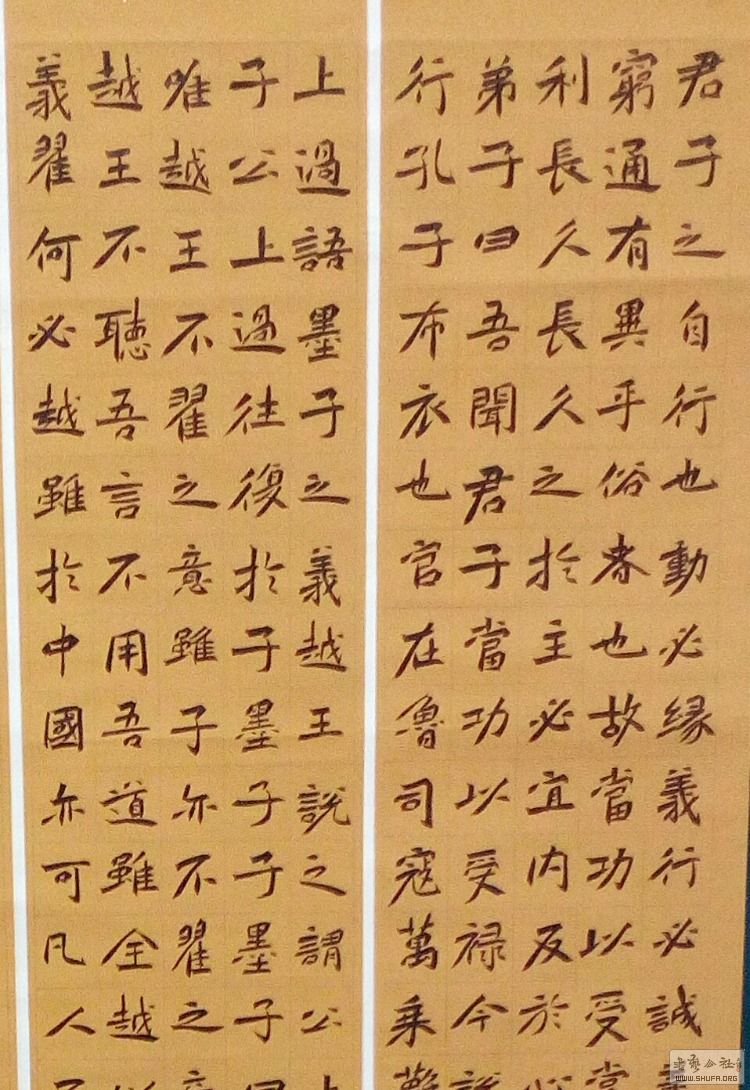 君子之自行也動必緣義行必誠
窮通有異乎俗者也故當功以受
利長久長久之於主必宜内反於
弟子曰吾聞君子當功以受禄今說
行孔子布衣也官在魯司寇萬乘難
上過語墨子之義越王說之謂公上
子公上過往復於子墨子子墨子
唯越王不翟之意雖子亦不翟之意
越王不聽吾言不用吾道雖全越以
義翟何必越雖於中國亦可凡人
WWW.SHUFA.ORG